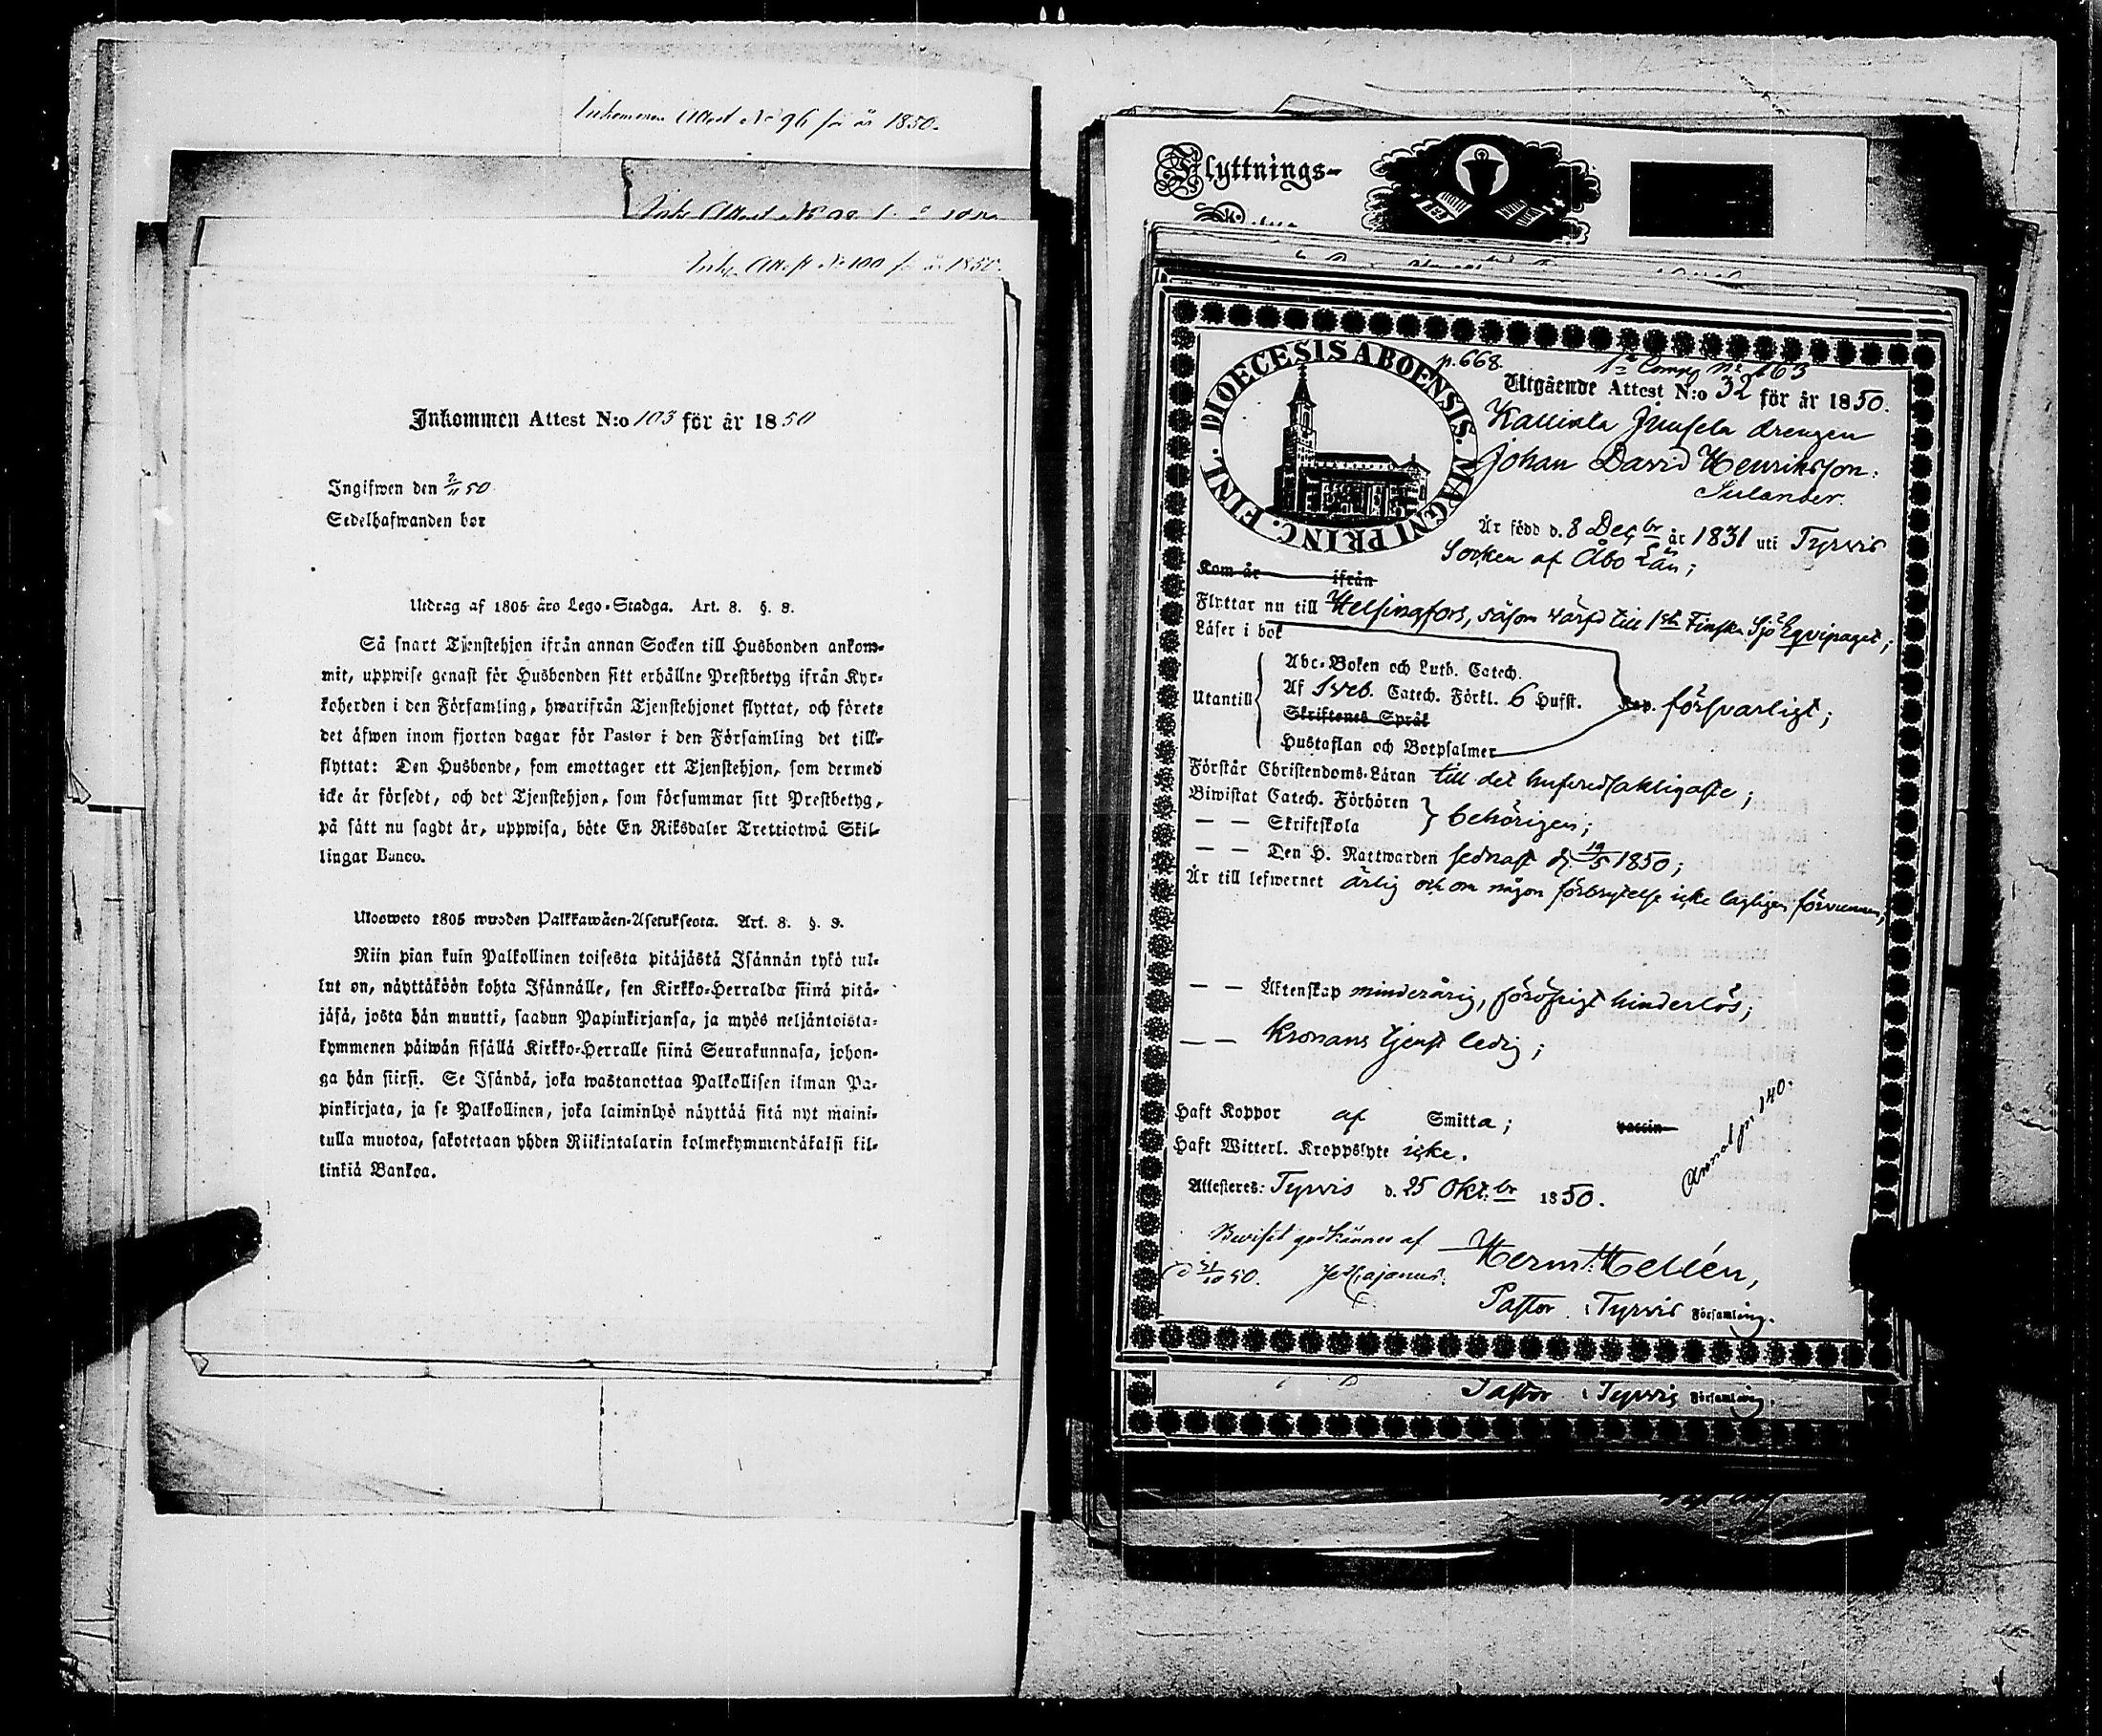 Inkommen Attest No 96 för år 1850.
Ink. Attest No 100 för år 1850.
Inkommen Attest N:o 103 för år 1850
Ingifwen den 2/11 50
Sedelhafwanden bor
Utdrag af 1805 års Lego-Stadga. Art. 8. §. 9.
Så snart Tjenstehjon ifrån annan Socken till Husbonden ankom-
mit, uppwise genast för Husbonden sitt erhållne Prestbetyg ifrån Kyr-
koherden i den Församling, hwarifrån Tjenstehjonet flyttat, och förete
det äfwen inom fjorton dagar för Pastor i den Församling det till-
flyttat: Den Husbonde, som emottager ett Tjenstehjon, som dermed
icke är försedt, och det Tjenstehjon, som försummar sitt Prestbetyg,
på sätt nu sagdt är, uppwisa, böte En Riksdaler Trettiotwå Skil-
lingar Banco.
Ulosweto 1805 wuoden Palkkawäen-Asetuksesta. Art. 8. §. 9.
Niin pian kuin Palkollinen toisesta pitäjästä Isännän tykö tul-
lut on, näyttäköön kohta Isännälle, sen Kirkko-Herralda siinä pitä-
jäsä, josta hän muutti, saadun Papinkirjansa, ja myös neljäntoista-
kymmenen päiwän sisällä Kirkko-Herralle siinä Seurakunnasa, johon-
ga hän siirsi. Se Isändä, joka wastanottaa Palkollisen ilman Pa-
pinkirjata, ja se Palkollinen, joka laiminlyö näyttää sitä nyt maini-
tulla muotoa, sakotetaan yhden Riikintalarin kolmekymmendäkaksi kil-
linkiä Bankoa.
Flyttnings-
DIOECESIS ABOENSIS. MAGNI PRINC. FINL.
p. 668.
Utgående Attest N:o 32 för år 1850.
drengen
Johan David Henriksson.
Är född d. 8 Decbr år 1831 uti Tyrvis
Socken af Åbo Län;
Kom år ifrån
Flyttar nu till Helsingfors, såsom värfd till 1sta Finska Sjö Eqvipaget;
Läser i bok
Abc-Boken och Luth. Catech.
Utantill Af Sveb. Catech. Förkl. 6 Hufst. försvarligt;
Skriftenes Språk
Hustaflan och Botpsalmer
Förstår Christendoms-Läran till det hufvudsakligaste;
Biwistat Catech. Förhören
— — Skriftskola behörigen;
— — Den H. Nattwarden sednast d. 19/5 1850;
Är till lefwernet ärlig och om någon förbrytelse icke lagligen förvunnen;
— — Äktenskap minderårig, föröfrigt hinderlös;
— — Kronans tjenst ledig;
Haft Koppor af Smitta; vaccin
Haft Witterl. Kroppslyte icke.
Annot. p. 140.
Attesteres: Tyrvis d. 25 Oktbr 1850.
Beviset godkännes af
d 31/10 50.
Herm. Hellén,
Pastor i Tyrvis Församling.
Pastor i Tyrvis Församling.